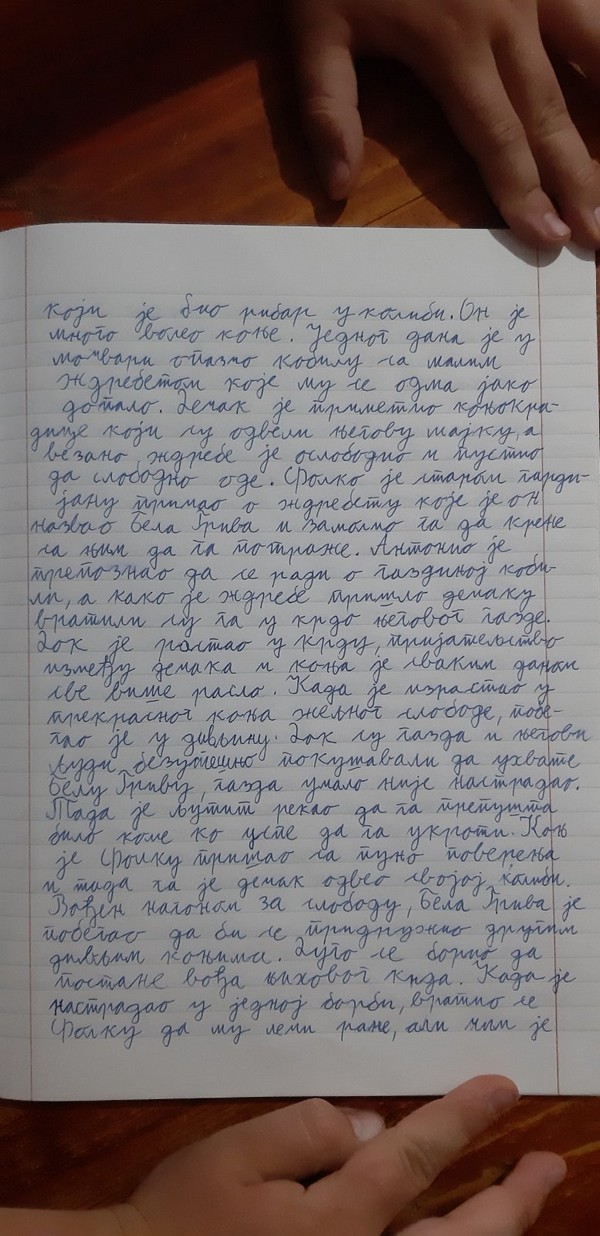 који је био рибар у колиби. Он је
много волео коње. Једног дана је у
мочвари опазио кобилу са малим
ждребетом које му се одма јако
допало. Дечак је приметио коњокра-
дице који су одвели његову мајку, а
везано ждребе је ослободио и пустио
да слободно оде. Фолко је старом гарди-
јану причао о ждребету које је он
назвао Бела Грива и замолио га да крене
са њим да га потраже. Антонио је
препознао да се ради о газдиној коби-
ли, а како је ждребе пришло дечаку
вратили су га у крдо његовог газде.
Док је растао у крду, пријатељство
између дечака и коња је сваким даном
све више расло. Када је израстао у
прекрасног коња жељног слободе, побе-
гао је у дивљину. Док су газда и његови
људи безуспешно покушавали да ухвате
Белу Гриву, газда умало није настрадао.
Тада је љутит рекао да га препушта
било коме ко успе да га укроти. Коњ
је Фолку пришао са пуно поверења
и тада га је дечак одвео својој колиби.
Вођен нагоном за слободу, Бела Грива је
побегао да би се придружио другим
дивљим коњима. Дуго се борио да
постане вођа њиховог крда. Када је
настрадао у једној борби, вратио се
Фолку да му лечи ране, али чим је